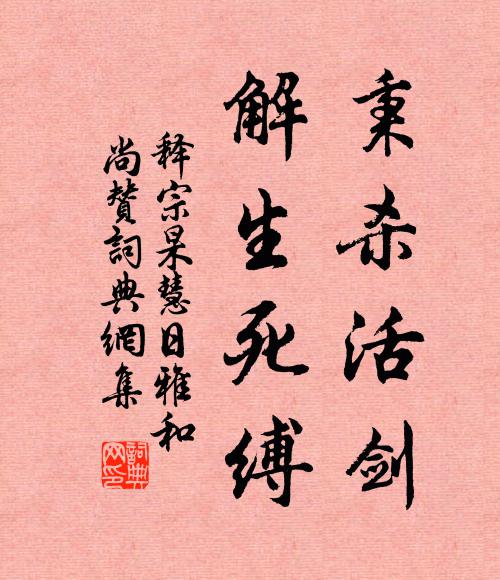 秉杀活剑
解生死缚
释宗杲慧日雅和
尚赞詞典網集
詞典網印